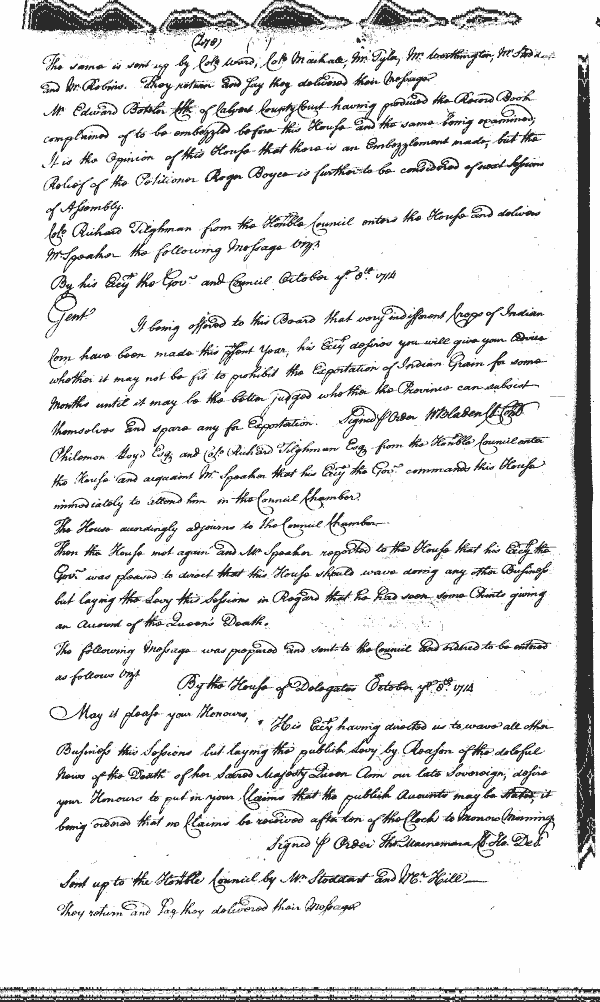 (248)
The same is sent up by Col.o Ward, Col.o Machall, Mr Tyler, Mr Worthington, Mr Stoddart
and Mr Robins. They return and say they delivered their Message
Mr Edward Botelor Clk of Calvert County Court having produced the Record Book
complained of to be embezzled before this House and the same being examined,
It is the Opinion of this House that there is an Embezzlement made, but the
Relief of the Petitioner Roger Boyce is further to be considered of next Sessions
of Assembly.
Col.o Richard Tilghman from the Hon:ble Council enters the House and delivers
Mr Speaker the following Message Viz.t
By his Ex:cy the Gov.r and Council October ye 8.th 1714
Gent.n
It being offered to this Board that very indifferent Crops of Indian
Corn have been made this pſent Year, his Ex:cy desires you will give your Advice
whether it may not be fit to prohibit the Exportation of Indian Grain for some
Months until it may be the better judged whether the Province can subsist
themselves and spare any for Exportation. Signed ꝑ Order W Bladen Cl Con
Philemon Lloyd Esq.r and Col.o Richard Tilghman Esq.r from the Hon:ble Council enter
the House and acquaint Mr Speaker that his Ex:cy the Gov.r commands this House
immediately to attend him in the Council Chamber
The House accordingly adjourns to the Council Chamber
Then the House met again and Mr Speaker reported to the House that his Ex:cy the
Gov.r was pleased to direct that this House should wave doing any other Business
but laying the Levy this Sessions in Regard that he had seen some Prints giving
an Account of the Queen's Death.
The following Message was prepared and sent to the Council and ordered to be entered
as follows Viz.t
By the House of Delegates October ye 8.th 1714
May it please your Honours,
His Ex:cy having directed us to wave all other
Business this Sessions but laying the publick Levy by Reason of the doleful
News of the Death of her Sacred Majesty Queen Ann our late Sovereign, desire
your Honours to put in your Claims that the publick Accounts may be stated, it
being ordered that no Claims be received after ten of the Clock to Morrow Morning
Signed ꝑ Order Tho.s Macnemara Cl Ho. Del.
Sent up to the Hon:ble Council by Mr Stoddart and Mr Hill
They return and Say they delivered their Message